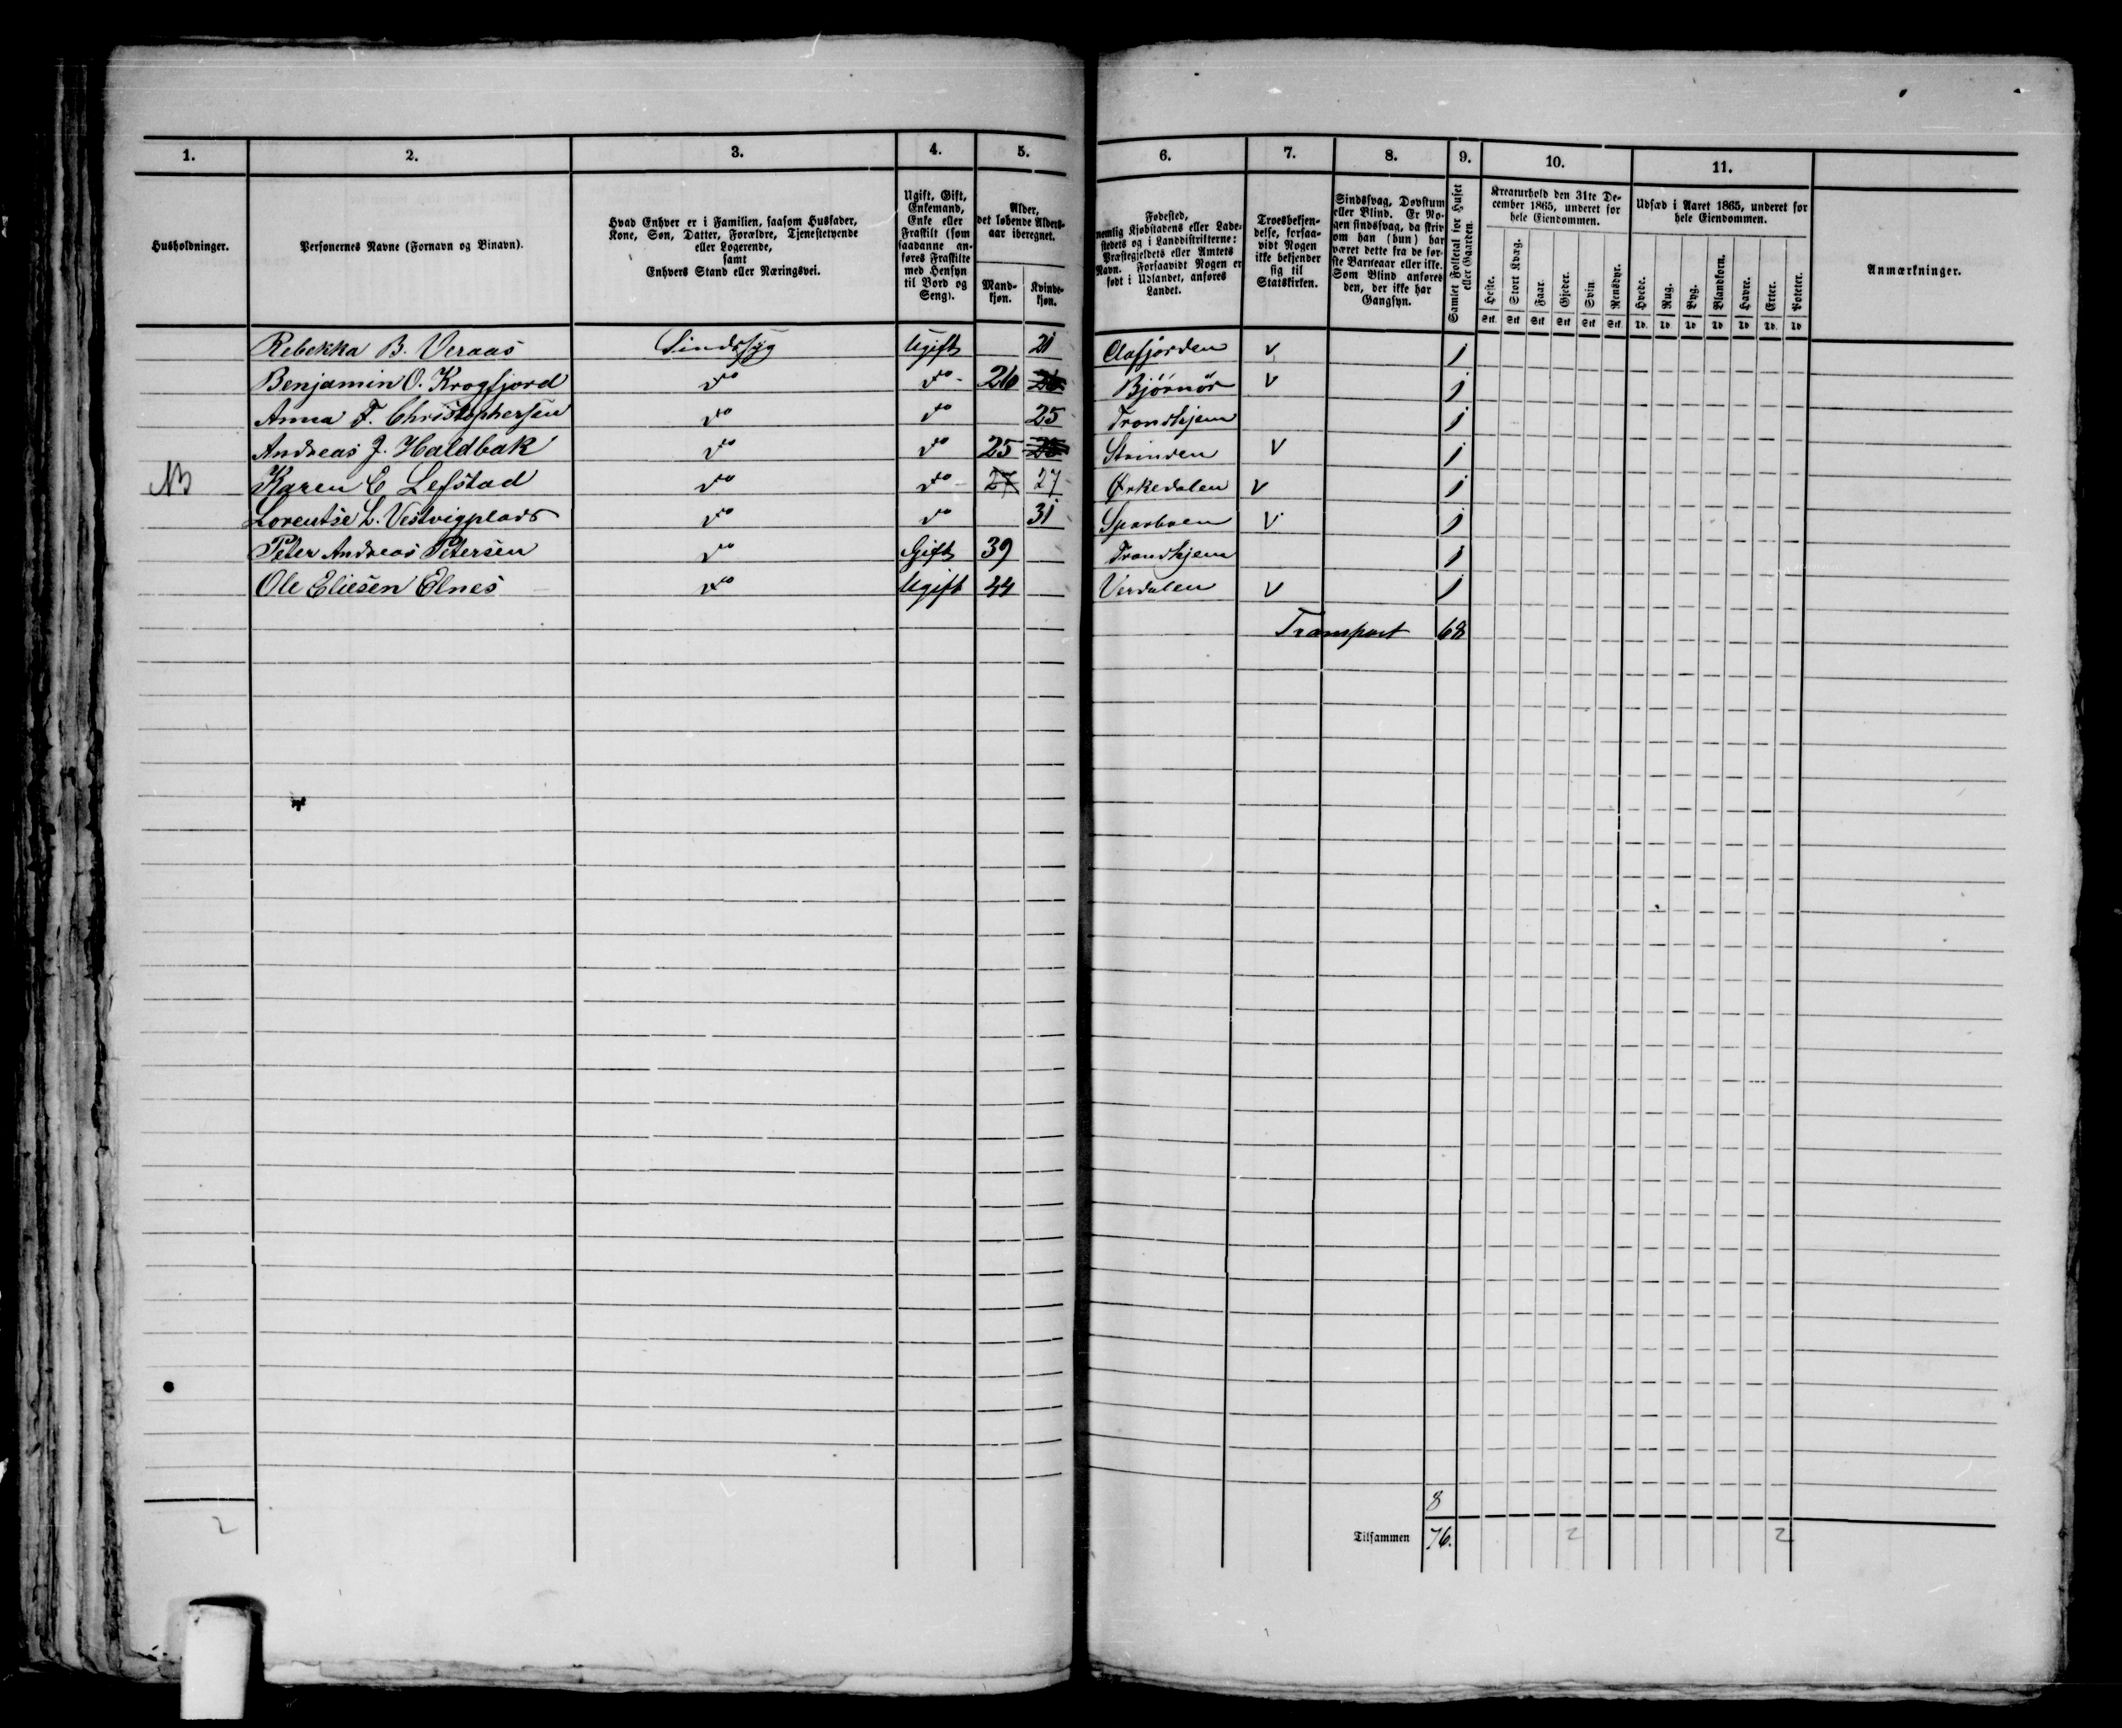 1. 2. 3. 4. 5. 6. 7. 8. 9. 10. 11.
Husholdninger.
Personernes Navne (Fornavn og Binavn).
Hvad Enhver er i Familien, saasom Husfader,
Kone, Søn, Datter, Forældre, Tjenestetyende
eller Logerende,
samt
Enhvers Stand eller Næringsvei.
Ugift, Gift,
Enkemand,
Enke eller
Fraskilt (som
saadanne an-
føres Fraskilte
med Hensyn
til Bord og
Seng).
Alder,
det løbende Alders-
aar iberegnet.
Mand-
kjøn.
Kvinde-
kjøn.
Fødested,
nemlig Kjøbstadens eller Lade-
stedets og i Landdistrikterne:
Præstegjeldets eller Amtets
Navn. Forsaavidt Nogen er
født i Udlandet, anføres
Landet.
Troesbekjen-
delse, forsaa-
vidt Nogen
ikke bekjender
sig til
Statskirken.
Sindssvag, Døvstum
eller Blind. Er No-
gen sindssvag, da skriv
om han (hun) har
været dette fra de før-
ste Barneaar eller ikke.
Som Blind anføres
den, der ikke har
Gangsyn.
Samlet Folketal for Huset
eller Gaarden.
Kreaturhold den 31te De-
cember 1865, underet for
hele Eiendommen.
Heste. Stort Kvæg. Faar. Gjeder. Svin. Rensdyr.
Stk Stk Stk Stk Stk Stk
Udsæd i Aaret 1865, underet for
hele Eiendommen.
Hvede. Rug. Byg. Blandkorn. Havre. Erter. Poteter.
Td. Td Td Td Td Td. Td
Anmærkninger.
Rebekka B. Veraas Sindssyg Ugift 21 Aafjorden V 1
Benjamin O. Krogfjord do do 26 26 Bjørnør V 1
Anna F. Christophersen do do 25 Trondhjem 1
Andreas J. Haldbak do do 25 25 Strinden V 1
NB Karen E Lefstad do do 27 27 Ørkedalen V 1
Lorentse L. Vestvigplads do do 31 Sparboen V 1
Peter Andreas Petersen do Gift 39 Trondhjem 1
Ole Eliesen Elnes do Ugift 44 Verdalen V 1
Transport 68
8
2 Tilsammen 76. 2 2